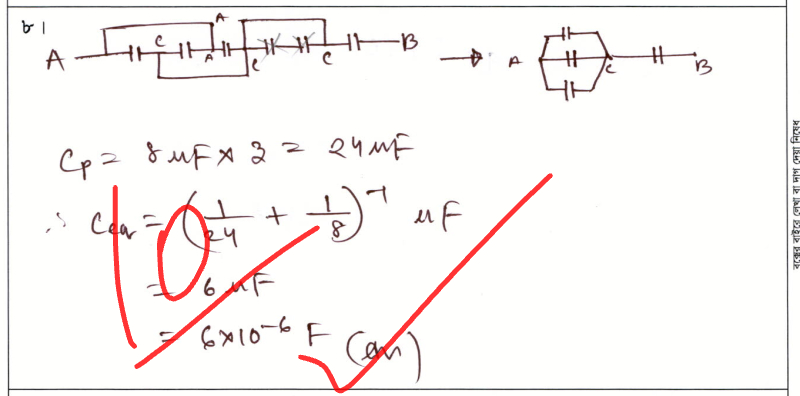 ৮।
A C A A C C B → A C B
Cp = 8 μF × 3 = 24 μF
∴ Ceq = (1/24 + 1/8)⁻¹ μF
= 6 μF
= 6×10⁻⁶ F (Ans)
বক্সের বাইরে লেখা বা দাগ দেয়া নিষেধ